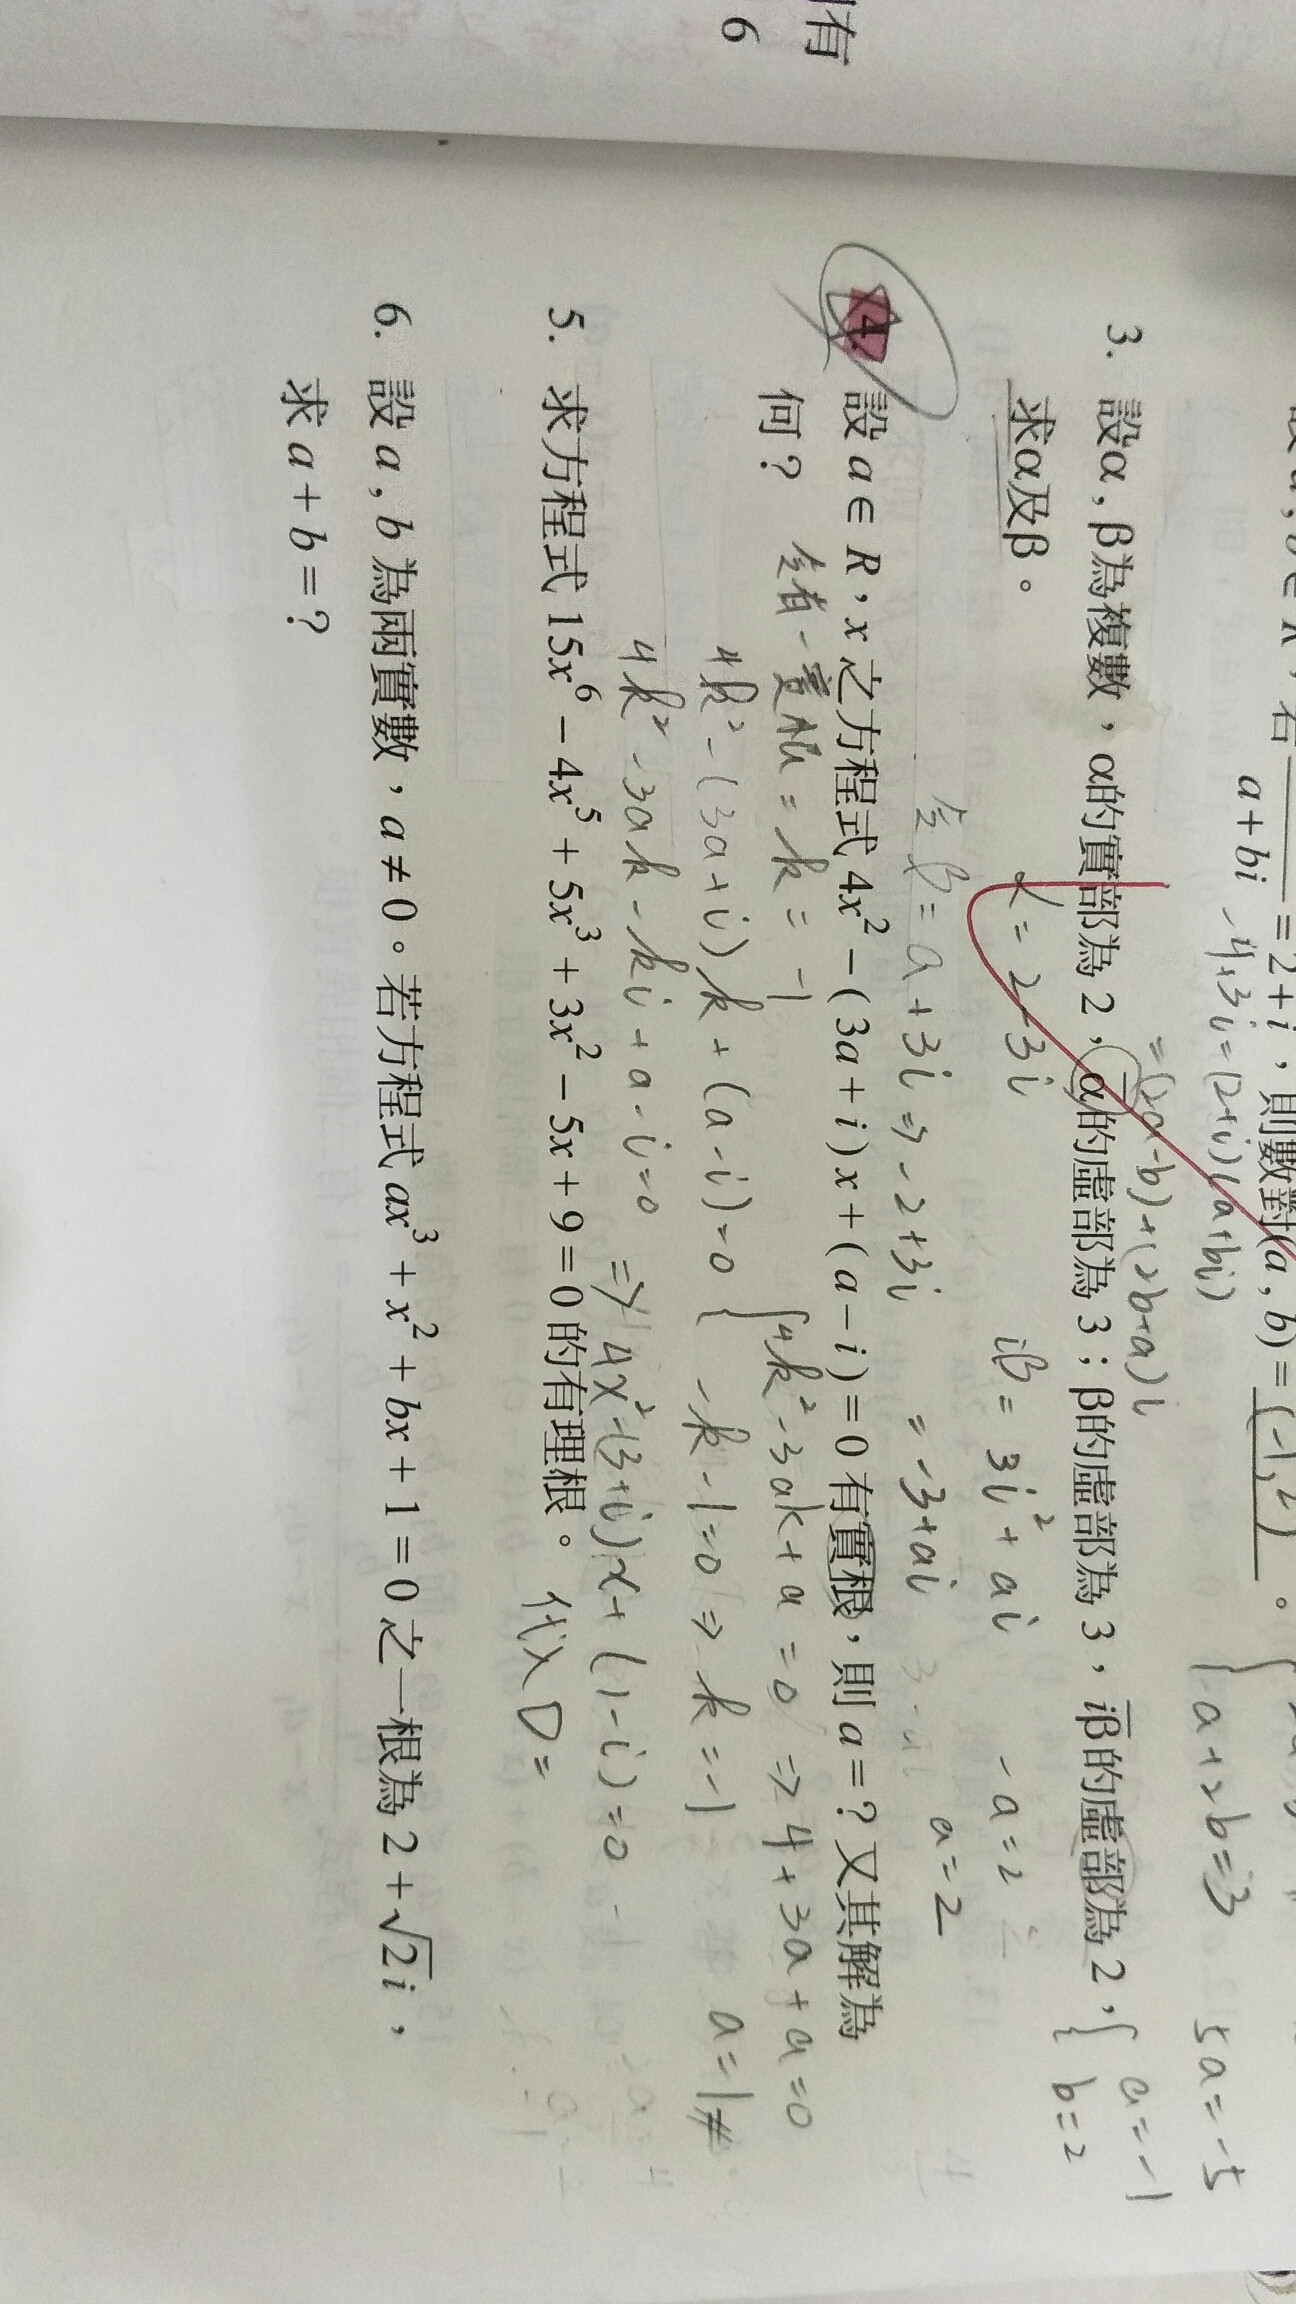 有
6
a+bi = 2+i，則數對(a, b) = (-1, 2)。
-4+3i=(2+i)(a+bi)
=(2a-b)+(2b+a)i
a+2b=3
5a=-5
{a=-1
b=2
3. 設α, β為複數，α的實部為 2，α的虛部為 3；β的虛部為 3，iβ的虛部為 2，
求α及β。
α=2-3i
iβ=3i²+ai
-a=2
令β=a+3i⇒-2+3i
=-3+ai
a=2
4. 設 a∈R，x 之方程式 4x²-(3a+i)x+(a-i)=0 有實根，則 a=？又其解為
何？
令有一實根=k=-1
4k²-(3a+i)k+(a-i)=0
{4k²-3ak+a=0 ⇒4+3a+a=0
-k-1=0⇒k=-1
a=1#
4k²-3ak-ki+a-i=0
⇒4x²-(3+i)x+(1-i)=0
代入D=
5. 求方程式 15x⁶-4x⁵+5x³+3x²-5x+9=0 的有理根。
6. 設 a, b 為兩實數，a≠0。若方程式 ax³+x²+bx+1=0 之一根為 2+√2i，
求 a+b=？